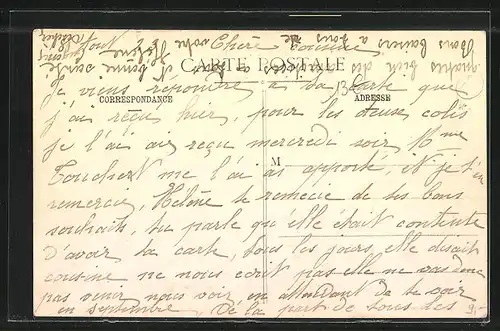 Chère Cousine
CARTE POSTALE
CORRESPONDANCE
ADRESSE
M
Je viens répondre a ta carte que
j'ai reçu hier, pour les deuse colis
je l'ai reçu mercredi soir Mme
me l'ai apporté, et je t'en
remercie, Hélène te remecie de tes bons
souhaits, tu parle qu'elle était contente
d'avoir ta carte, tous les jours, elle disait
cousine ne nous ecrit pas elle ne vas donc
pas venir nous voir, en attendant de te voir
en septembre, De la part de tous les
Bons baisers a tous de
votre Hélène
et bonne santé